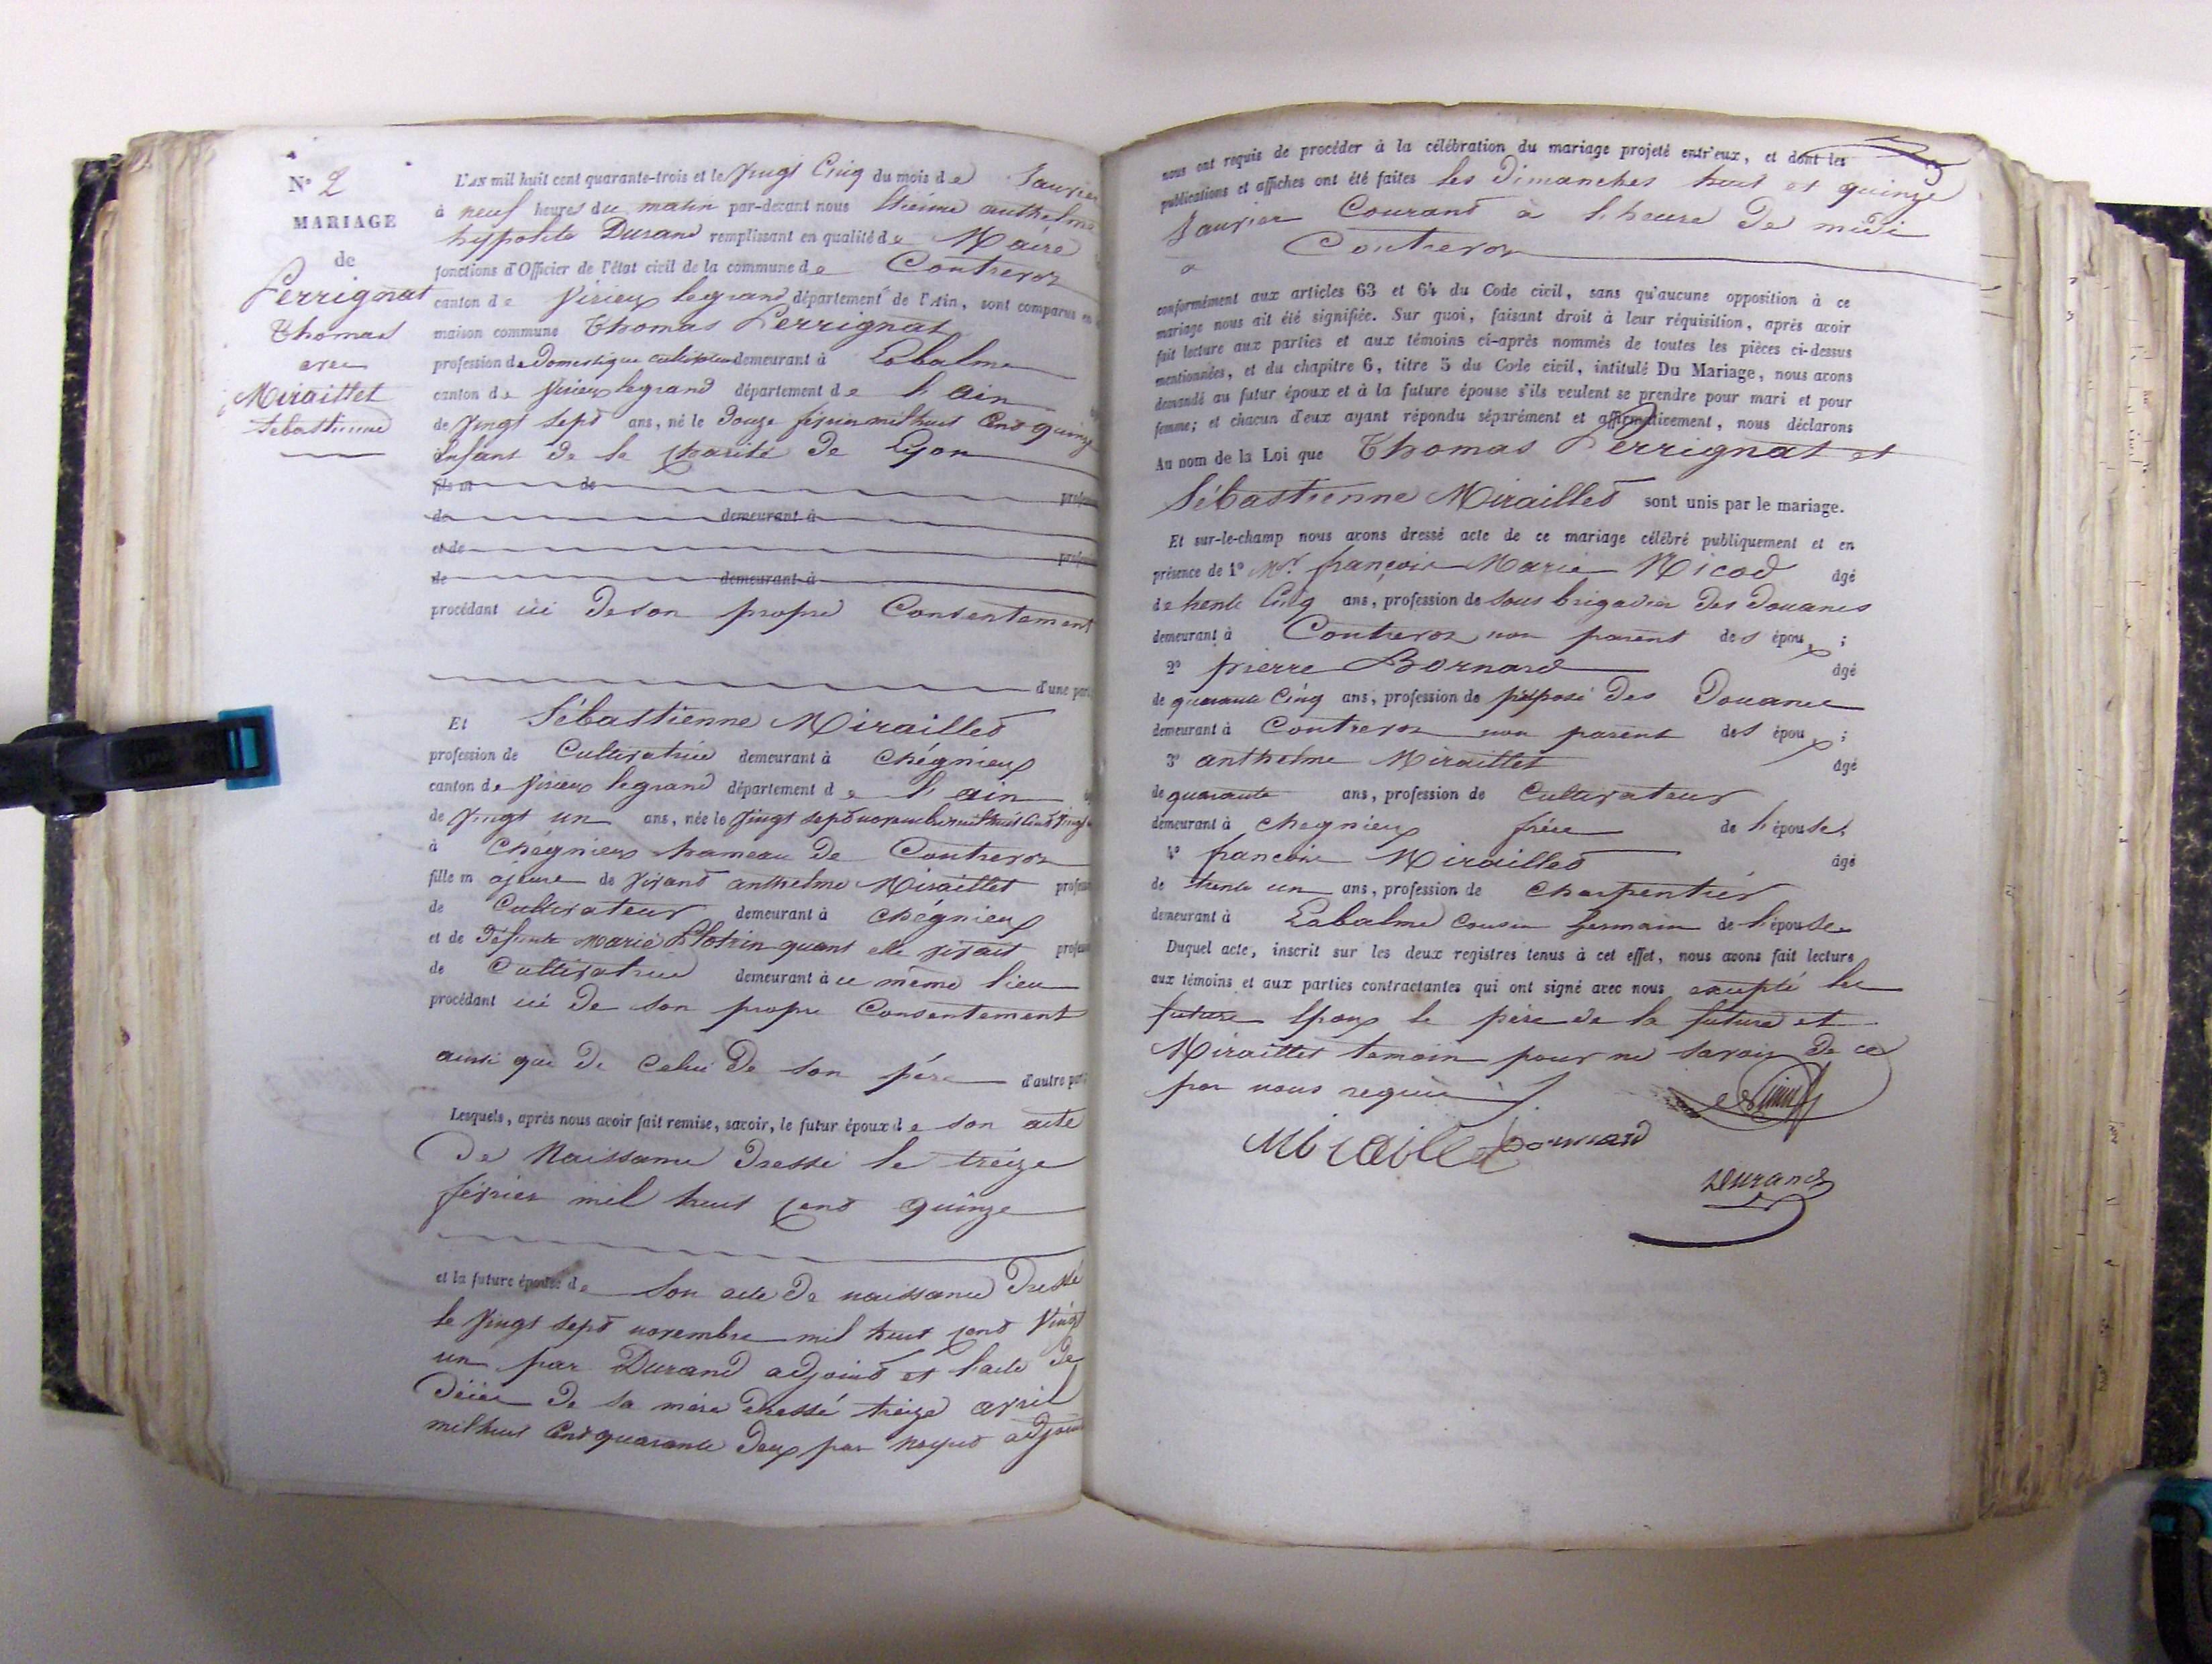 N° 2
MARIAGE
de
Perrignat
Thomas
avec
Miraillet
Sebastienne
L'AN mil huit cent quarante-trois et le Vingt Cinq du mois de Janvier
à neuf heures du matin par-devant nous Etienne anthelme
hyppolite Durand remplissant en qualité de Maire
fonctions d'Officier de l'état civil de la commune de Contrevoz
canton de Virieux legrand département de l'Ain, sont comparus en
maison commune Thomas Perrignat
profession de Domestique cultivateur demeurant à Labalme
canton de Virieux legrand département de l'ain
de Vingt sept ans, né le Douze février mil huit Cent quinze
Enfant de la charité de Lyon
fils m de profession
de demeurant à
et de profession
de demeurant à
procédant ici de son propre Consentement
d'une part
Et Sébastienne Miraillet
profession de Cultivatrice demeurant à Chégnieux
canton de Virieux legrand département de l'ain
de Vingt un ans, née le Vingt sept novembre mil huit Cent Vingt un
à Chégnieux hameau de Contrevoz
fille majeure de Vivant anthelme Miraillet profession
de Cultivateur demeurant à Chégnieux
et de Défunte Marie Plotrin quant elle vivait profession
de Cultivatrice demeurant à ce même lieu
procédant ici de son propre Consentement
ainsi que de Celui de son père d'autre part
Lesquels, après nous avoir fait remise, savoir, le futur époux de son acte
de Naissance Dressé le treize
février mil huit cent quinze
et la future épouse de son acte de naissance Dressé
le Vingt sept novembre mil huit cent Vingt
un par Durand adjoint et l'acte de
Décès de sa mère dressé treize avril
mil huit Cent quarante Deux par adjoint
nous ont requis de procéder à la célébration du mariage projeté entr'eux, et dont les
publications et affiches ont été faites les Dimanches huit et quinze
Janvier Courant à l'heure de midi
a Contrevoz
conformément aux articles 63 et 64 du Code civil, sans qu'aucune opposition à ce
mariage nous ait été signifiée. Sur quoi, faisant droit à leur réquisition, après avoir
fait lecture aux parties et aux témoins ci-après nommés de toutes les pièces ci-dessus
mentionnées, et du chapitre 6, titre 5 du Code civil, intitulé Du Mariage, nous avons
demandé au futur époux et à la future épouse s'ils veulent se prendre pour mari et pour
femme; et chacun d'eux ayant répondu séparément et affirmativement, nous déclarons
Au nom de la Loi que Thomas Perrignat et
Sébastienne Miraillet sont unis par le mariage.
Et sur-le-champ nous avons dressé acte de ce mariage célébré publiquement et en
présence de 1° Mr. françois Marie Nicod âgé
de trente Cinq ans, profession de sous brigadier des Douanes
demeurant à Contrevoz non parent des époux ;
2° pierre Bornard âgé
de quarante Cinq ans, profession de préposé des Douanes
demeurant à Contrevoz non parent des époux ;
3° anthelme Miraillet âgé
de quarante ans, profession de Cultivateur
demeurant à Chegnieux frére de l'épouse,
4° françois Miraillet âgé
de trente un ans, profession de Charpentier
demeurant à Labalme Cousin Germain de l'épouse
Duquel acte, inscrit sur les deux registres tenus à cet effet, nous avons fait lecture
aux témoins et aux parties contractantes qui ont signé avec nous excepté les
future Epoux le père de la future et
Miraillet temoin pour ne savoir de ce
par nous requis
Miraillet Bornard
Durand